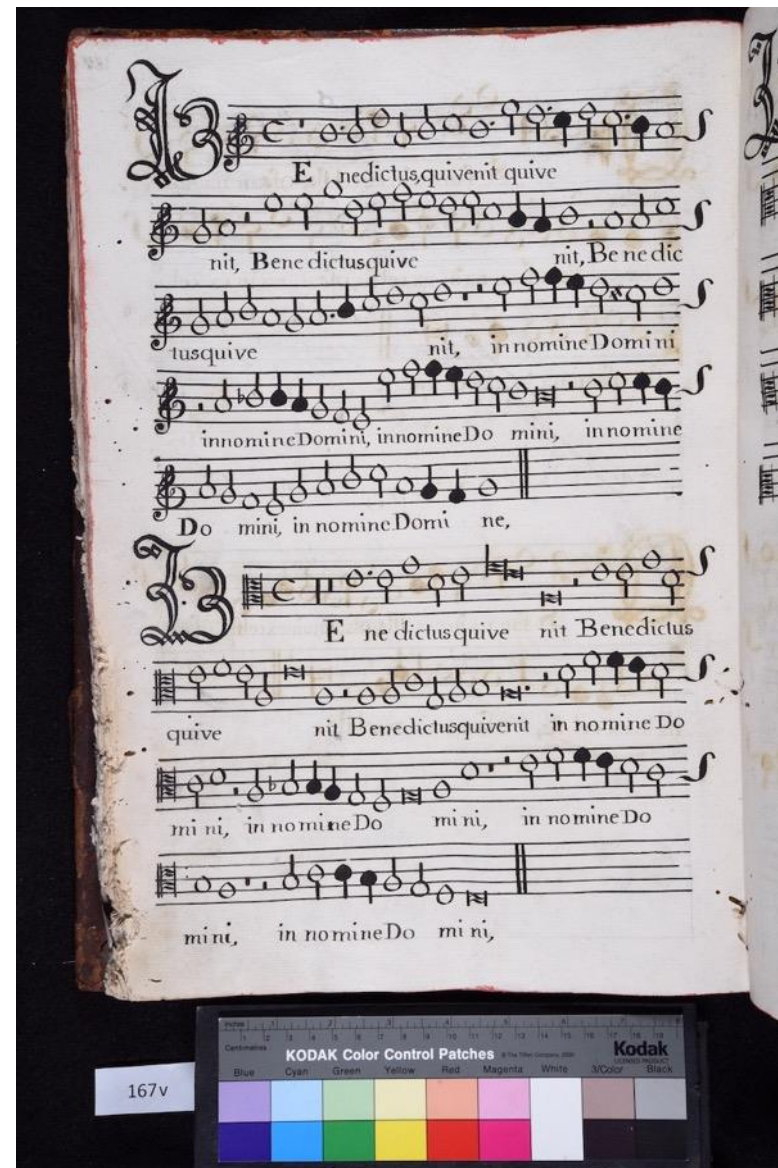 BE nedictus, quivenit quive
nit, Bene dictusquive nit, Be ne dic
tusquive nit, in nomine Domi ni
in nomine Domini, in nomine Do mini, in nomine
Do mini, in nomine Domi ne,
BE ne dictus quive nit Benedictus
quive nit Benedictusquivenit in nomine Do
mi ni, in nomine Do mi ni, in nomine Do
mi ni, in nomine Do mi ni,
167v
Inches
Centimetres
KODAK Color Control Patches
Kodak
LICENSED PRODUCT
Blue Cyan Green Yellow Red Magenta White 3/Color Black